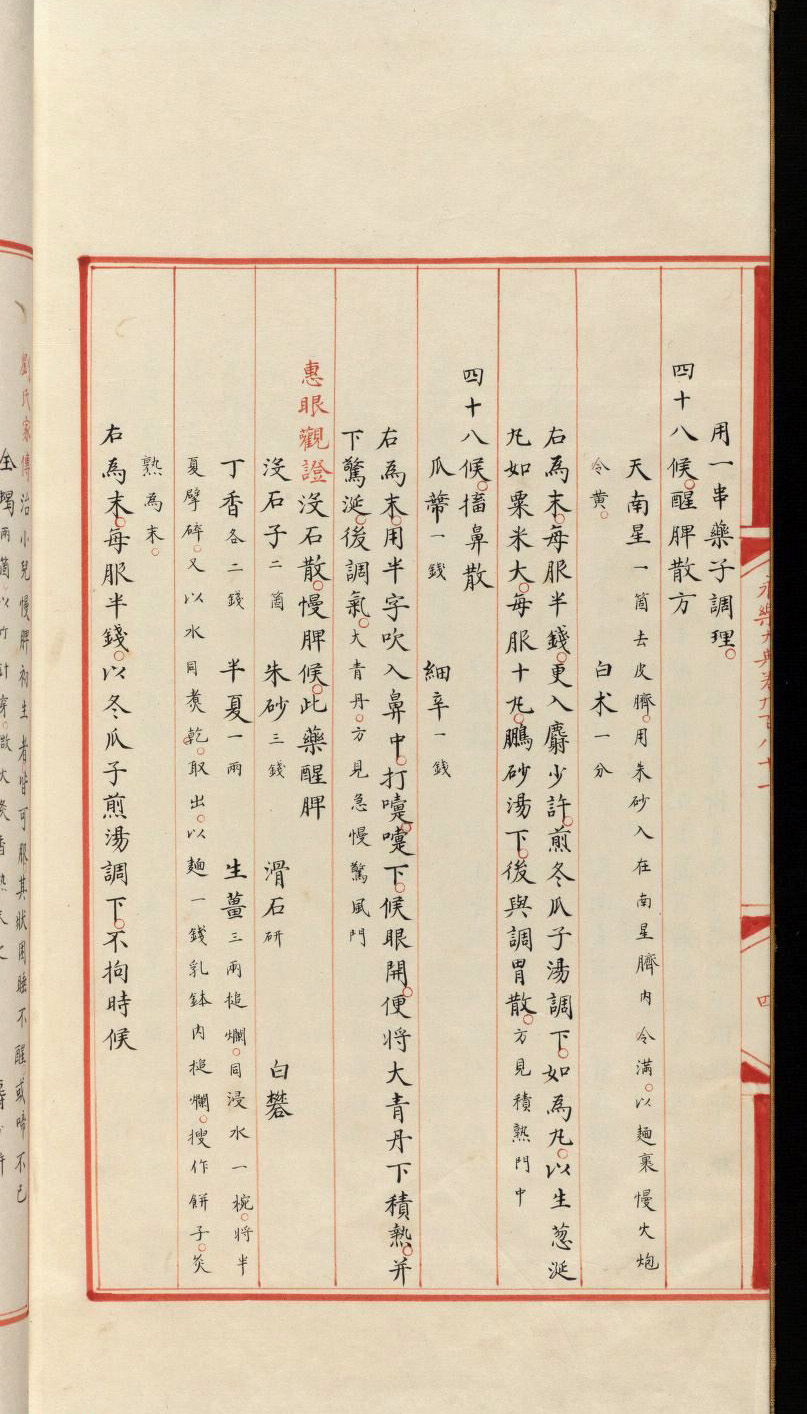 用一串藥子調理。
四十八候。醒脾散方
天南星一箇去皮臍。用朱砂入在南星臍內令滿。以麵裹慢火炮
令黄。 白术一分
右為末。每服半錢。更入麝少許。煎冬瓜子湯調下。如為丸。以生葱涎
丸如粟米大。每服十丸。鵬砂湯下。後與調胃散。方見積熱門中
四十八候。搐鼻散
瓜蔕一錢 細辛一錢
右為末。用半字吹入鼻中。打嚏。嚏下。候眼開。便将大青丹下積熱。并
下驚涎。後調氣。大青丹。方見急慢驚風門
惠眼觀證没石散。慢脾候。此藥醒脾
没石子二箇 朱砂三錢 滑石研 白礬
丁香各二錢 半夏一兩 生薑三兩搥爛。同浸水一椀。将半
夏擘碎。又以水同煑乾。取出。以麺一錢乳鉢内搥爛。搜作餅子。炙
熟為末。
右為末。每服半錢。以冬瓜子煎湯調下。不拘時候
永樂大典卷九百八十一
四
劉氏家傳治小兒慢脾初生者皆可服其狀困睡不醒或啼不已
全蝎兩箇。以竹針穿。